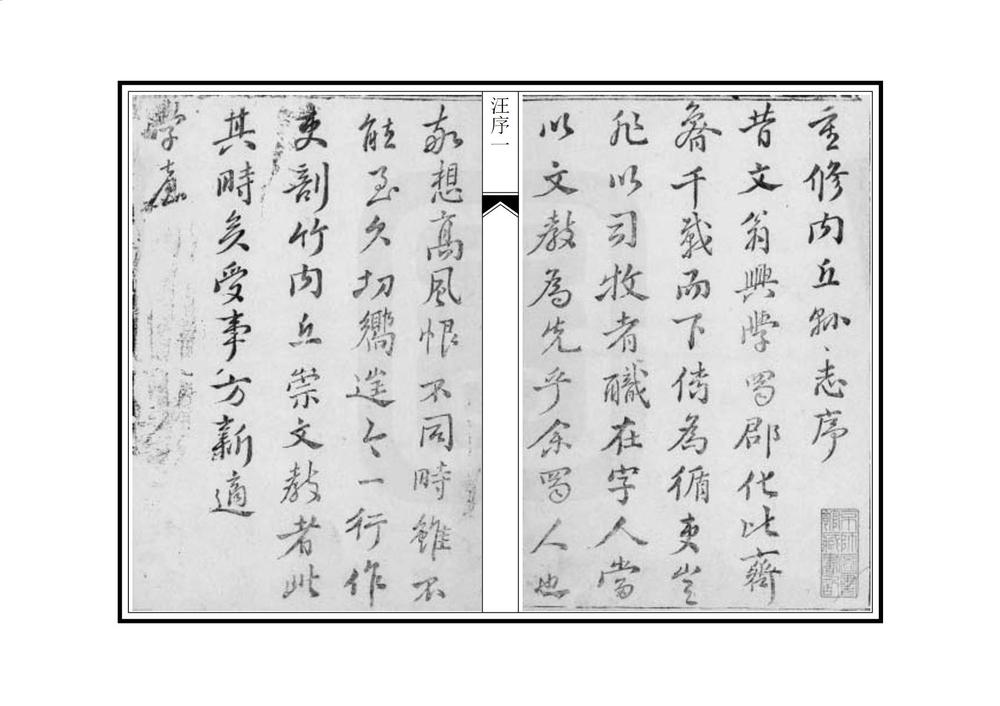 汪序一
重修内丘縣志序
昔文翁興學蜀郡化比齊
魯千載而下傳為循吏豈
非以司牧者職在字人當
以文教為先乎余蜀人也
敬想高風恨不同時雖不
能至久切嚮今一行作
吏剖竹内丘崇文教者此
其時矣受事方新適
學憲